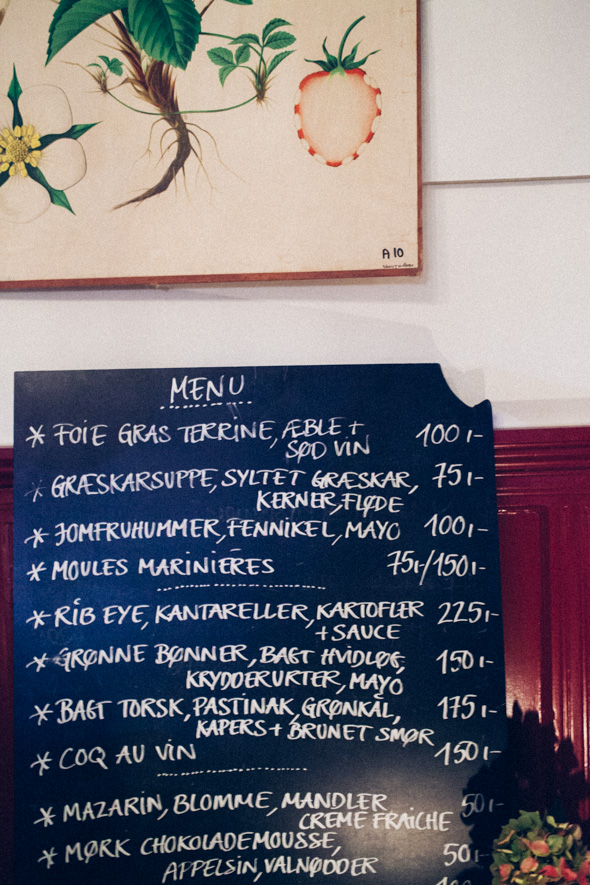 A 10
MENU
* FOIE GRAS TERRINE, ÆBLE + 100,-
SØD VIN
* GRÆSKARSUPPE, SYLTET GRÆSKAR, 75,-
KERNER, FLØDE
* JOMFRUHUMMER, FENNIKEL, MAYO 100,-
* MOULES MARINIÈRES 75,-/150,-
* RIB EYE, KANTARELLER, KARTOFLER 225,-
+ SAUCE
* GRØNNE BØNNER, BAGT HVIDLØG, 150,-
KRYDDERURTER, MAYO
* BAGT TORSK, PASTINAK, GRØNKÅL, 175,-
KAPERS + BRUNET SMØR
* COQ AU VIN 150,-
* MAZARIN, BLOMME, MANDLER 50,-
CREME FRAICHE
* MØRK CHOKOLADEMOUSSE, 50,-
APPELSIN, VALNØDDER